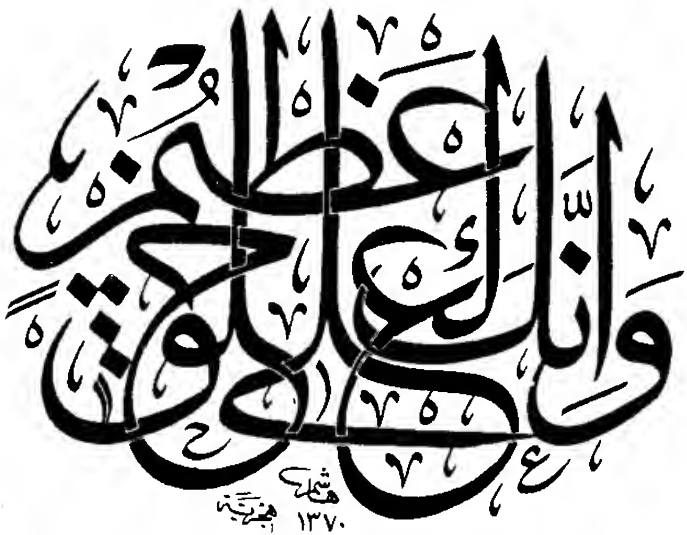 وَإِنَّكَ لَعَلَىٰ خُلُقٍ عَظِيمٍ
هاشم
١٣٧٠ هجرية